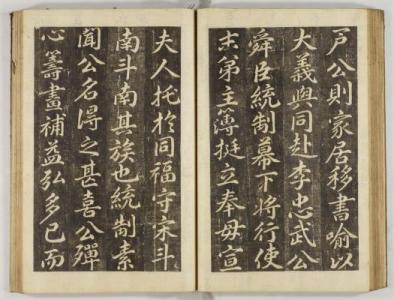 戶公則家居移書喻以
大義與同赴李忠武公
舜臣統制幕下將行使
末弟主簿挺立奉毋宣
夫人托於同福守宋斗
南斗南其族也統制素
聞公名得之甚喜公殫
心籌畫補益弘多已而